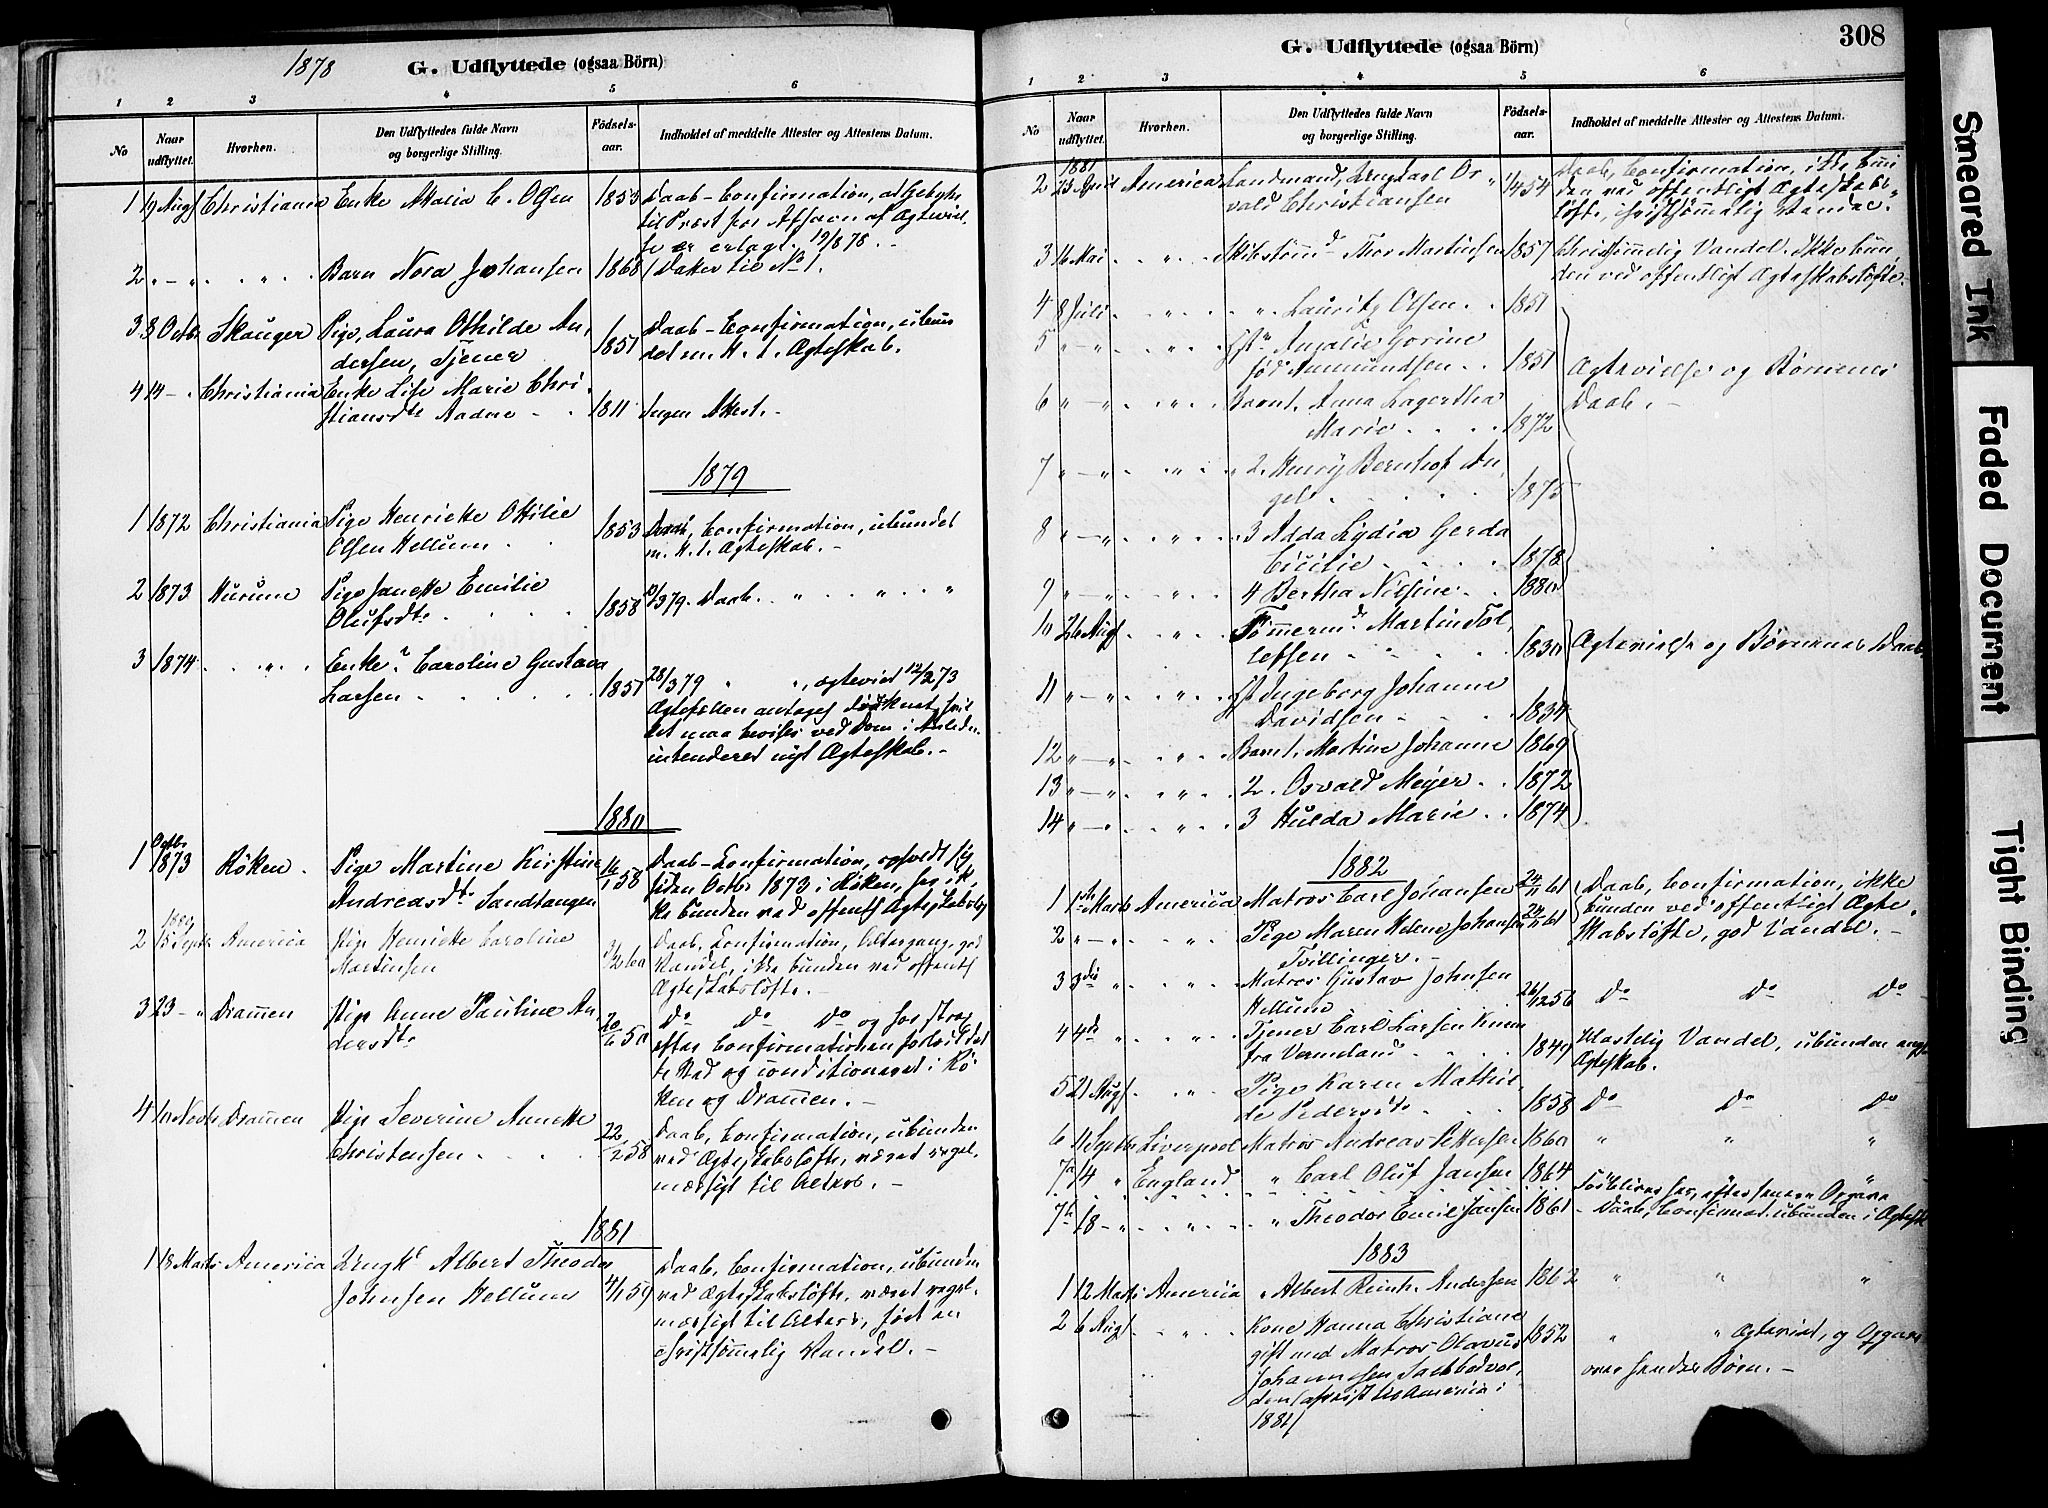 1878
G. Udflyttede (ogsaa Börn)
1 2 3 4 5 6
No
Naar udflyttet.
Hvorhen.
Den Udflyttedes fulde Navn og borgerlige Stilling.
Födsels-aar.
Indholdet af meddelte Attester og Attestens Datum.
1 9 Aug Christiania Enke Maria C. Olsen 1853 Daab-Confirmation, at Gebyhr
til Præst for Afsavn af Ægteviel-
se er erlagt. 19/8 78. -
2 " - " " Barn Nora Johansen 1868 Daker til No 1.
3 8 Octbr Skauger Pige, Laura Othilde An-
dersen, Tjener 1851 Daab-Confirmation, ubun
det m. H. t. Ægteskab.
4 14 - Christiania Enke Lise Marie Chri-
stiansdtr Aadne - 1811 Ingen Attest. -
1879
1 1872 Christiania Pige Henriette Otilie
Olsen Hellum 1853 Daab, Confirmation, ubundet
m. H. t. Ægteskab. -
2 1873 Hurum Pige Janette Emilie
Olufsdtr 1858 /3 79. Daab. " " "
3 1874 " Enke? Caroline Gustava
Larsen 1851 28/3 79 " ", ægteviet 12/2 73
Ægtefellen antages druknet, hvil
ket maa bevises ved Dom i Anledn.
intenderet nyt Ægteskab. -
1880
1 Octbr 1873 Röken Pige Martine Kirstine
Andreasdtr Sandtangen 16/1 58 Daab-Confirmation, opholdt sig
siden Octbr 1873 i Röken, har ik-
ke bunden ved offentl Ægteskabslöf
2 1880 15 Septbr America Pige Henriette Caroline
Martinsen 1/2 60 Daab, Confirmation, Altergang, god
Vandel, ikke bunden ved offentl
Ægteskabslöfte. -
3 23 - " Drammen Pige Anne Pauline An
dersdtr 20/6 50 Do Do Do og har strax
efter Confirmationen forladt det
te Sted og conditioneret i Rö-
ken og Drammen. -
4 10 Novbr Drammen Pige Severine Annette
Christensen 22/2 58 Daab, Confirmation, ubunden
ved Ægteskabslöfte, været regel-
mæssigt til Alters. -
1881
1 18 Marts America Ungk. Albert Theodor
Johnsen Hellum 4/1 59 Daab, Confirmation, ubunden
ved Ægteskabslöfte, været regel-
mæssigt til Alters, ført en
christsömmelig Vandel. -
308
G. Udflyttede (ogsaa Börn)
1 2 3 4 5 6
No
Naar udflyttet.
Hvorhen.
Den Udflyttedes fulde Navn og borgerlige Stilling.
Födsels-aar.
Indholdet af meddelte Attester og Attestens Datum.
1881
2 23 April America Landmand, Ungkarl Or-
vald Christiansen 1/4 54 Daab, Confirmation, ikke bun
den ved offentligt Ægteskabs-
löfte, christsömmelig Vandel.
3 16 Mai " Skibstömmd Thor Martinsen 1857 Christsömmelig Vandel. Ikke bun
den ved offentligt Ægteskabslöfte.
4 8 Juli " " Lauritz Olsen 1851
5 " - " " Hstr Amalie Gorine
fød Anmundsen 1851 Ægtevielse og Börnenes
Daab. -
6 " - " " Barn 1. Anna Lagertha
Marie 1872
7 " - " " " 2. Henry Bernhof An-
gel 1875
8 " - " " 3 Adda Lydia Gerda
Cicilie 1878
9 " - " " 4 Bertha Nilsine 1880
10 26 Aug " Tömmermd Martin Tol-
lefsen 1830 Ægtevielse og Börnenes Daab
11 " - " " Hst Ingeborg Johanne
Davidsen 1834
12 " - " " Barn 1. Martine Johanne 1869
13 " - " " 2. Osvald Meyer 1872
14 " - " " 3 Hulda Marie 1874
1882
1 1ste Marts America Matros Carl Johansen 24/11 61 Daab, Confirmation, ikke
bunden ved offentligt Ægte-
skabslöfte, god Vandel. -
2 " - " " Pige Maren Helene Johansen 24/11 61
Tvillinger. -
3 3die " " Matros Gustav Johnsen
Hellum 26/12 56 Do Do Do
4 4de " Tjener Carl Larsen
fra Vermeland 1849 Hæderlig Vandel, ubunden ang
Ægteskab.
5 21 Aug " Pige Karen Mathil-
de Pedersdtr 1858 Do Do Do
6 11 Septbr Liverpool Matros Andreas Pettersen 1860 " " "
7a 14 " England " Carl Oluf Jansen 1864 Forbliver her, efter senere Opgave
7b 18 - " " " Theodor Emil Jansen 1861 - Daab, Confirmat. ubunden i Ægtesk
1883
1 12 Marts America " Albert Reinh. Andersen 1862 " " "
2 6 Aug " " Kone Hanna Christiane
gift med Matros Olavus
Johannesen Sachbodvol-
den (afreist til America i
1881) 1852 " " Ægteviet, og Opgave
over hendes Börn. -
Smeared Ink
Faded Document
Tight Binding